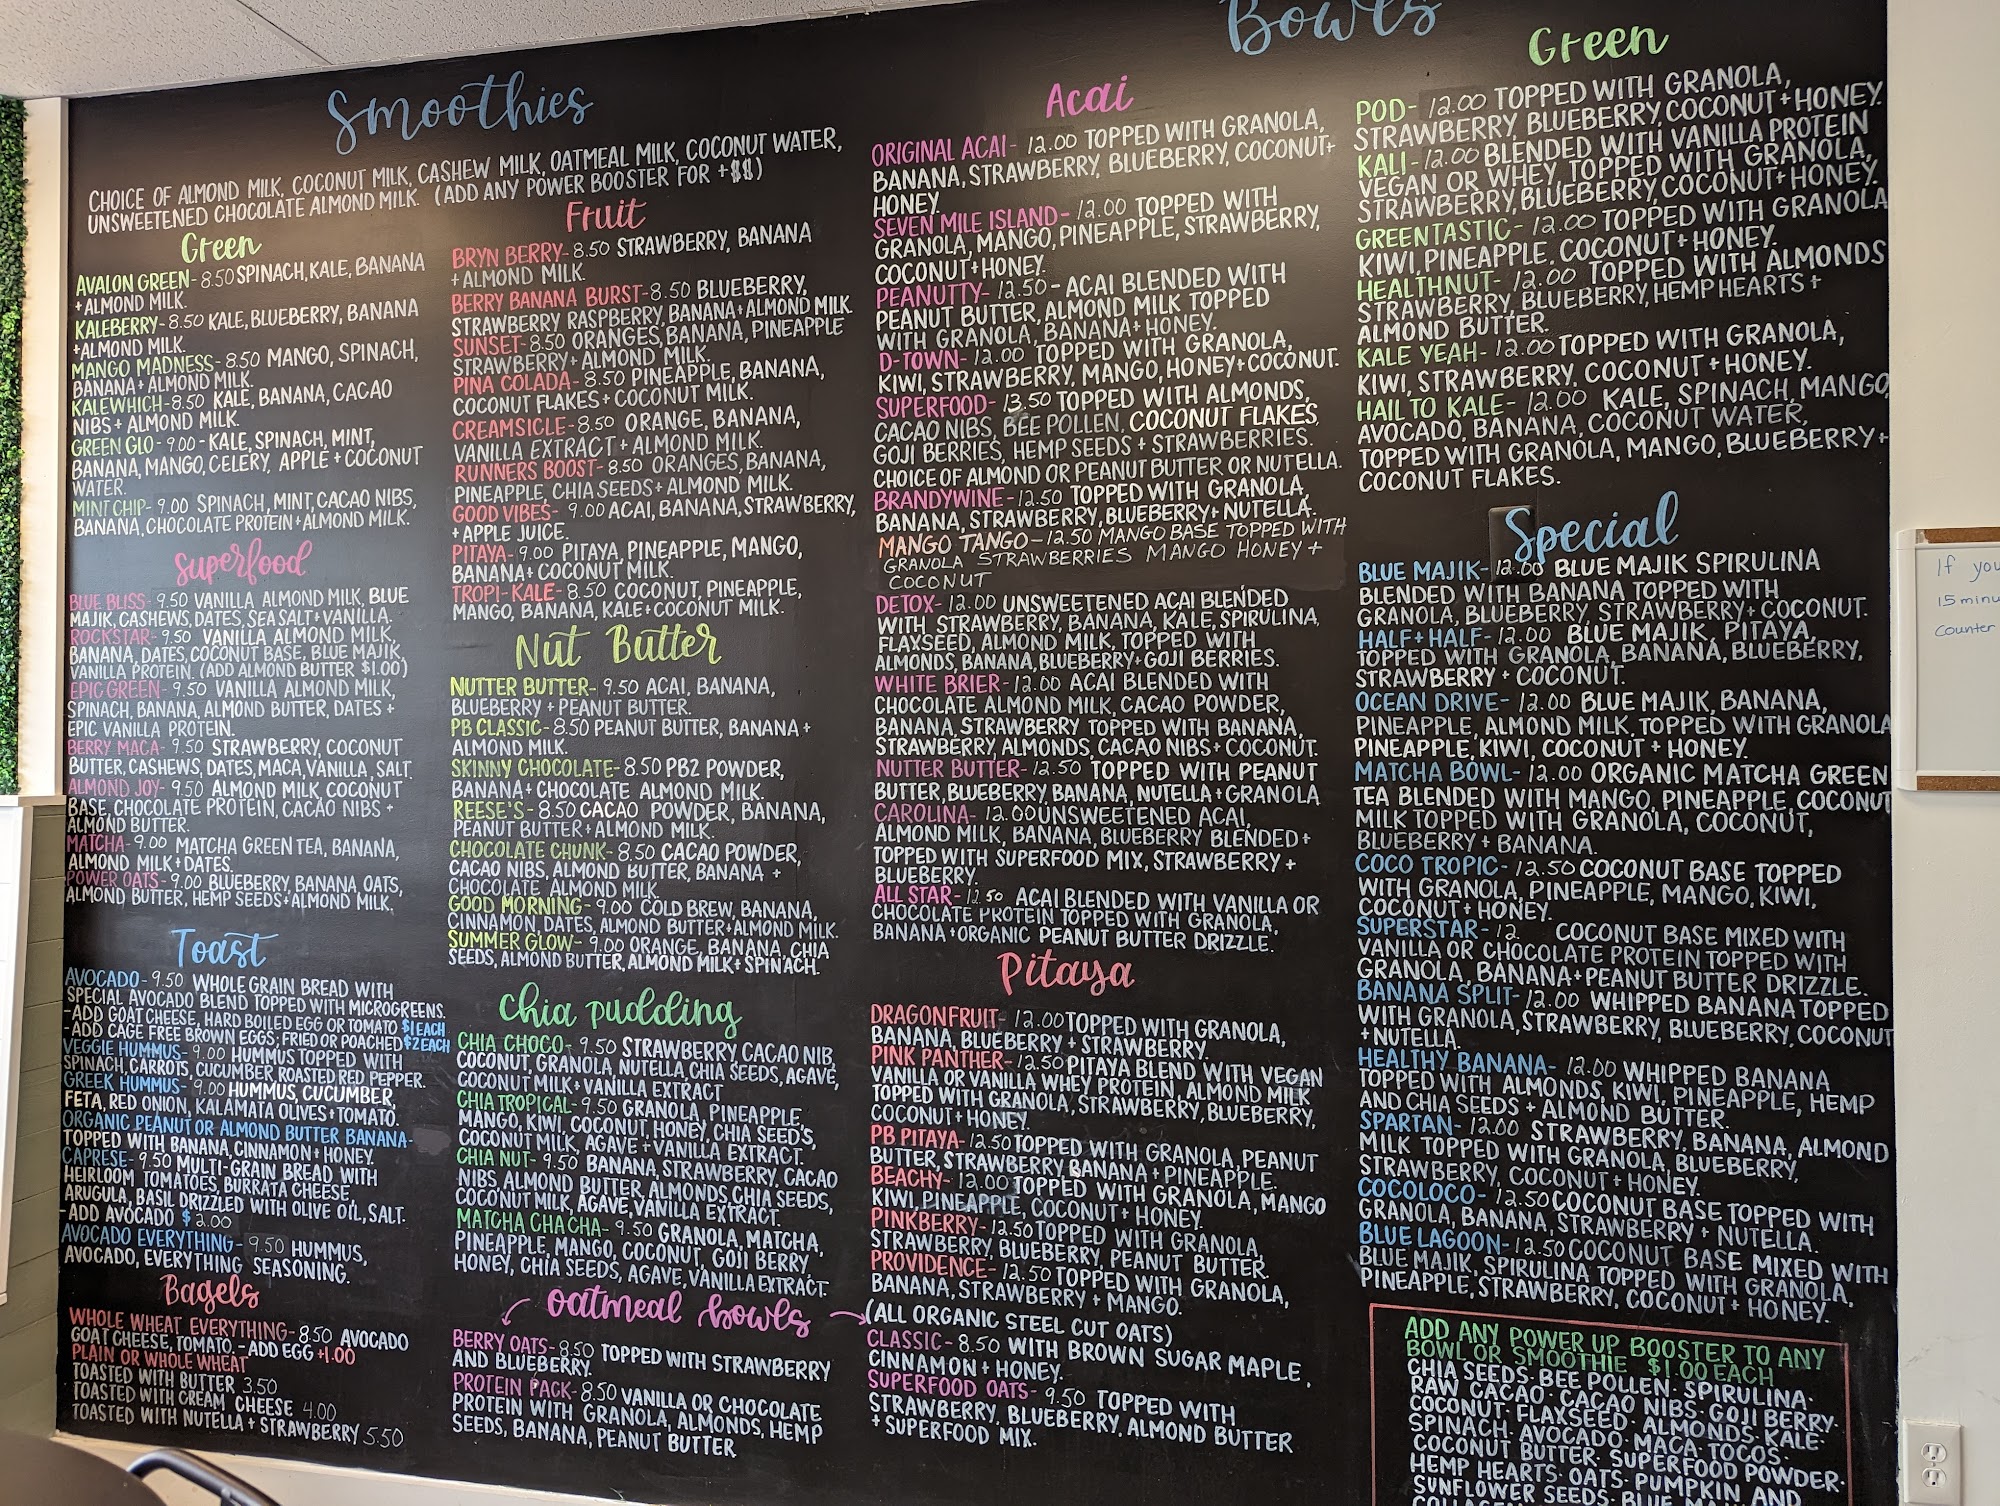 Smoothies
CHOICE OF ALMOND MILK, COCONUT MILK, CASHEW MILK, OATMEAL MILK, COCONUT WATER,
UNSWEETENED CHOCOLATE ALMOND MILK. (ADD ANY POWER BOOSTER FOR +$$)
Green
AVALON GREEN- 8.50 SPINACH, KALE, BANANA
+ ALMOND MILK.
KALEBERRY- 8.50 KALE, BLUEBERRY, BANANA
+ALMOND MILK.
MANGO MADNESS- 8.50 MANGO, SPINACH,
BANANA + ALMOND MILK.
KALEWHICH- 8.50 KALE, BANANA, CACAO
NIBS + ALMOND MILK.
GREEN GLO- 9.00 - KALE, SPINACH, MINT,
BANANA, MANGO, CELERY, APPLE + COCONUT
WATER.
MINT CHIP- 9.00 SPINACH, MINT, CACAO NIBS,
BANANA, CHOCOLATE PROTEIN + ALMOND MILK.
Superfood
BLUE BLISS- 9.50 VANILLA ALMOND MILK, BLUE
MAJIK, CASHEWS, DATES, SEA SALT + VANILLA.
ROCKSTAR- 9.50 VANILLA ALMOND MILK,
BANANA, DATES, COCONUT BASE, BLUE MAJIK,
VANILLA PROTEIN. (ADD ALMOND BUTTER $1.00)
EPIC GREEN- 9.50 VANILLA ALMOND MILK,
SPINACH, BANANA, ALMOND BUTTER, DATES +
EPIC VANILLA PROTEIN.
BERRY MACA- 9.50 STRAWBERRY, COCONUT
BUTTER, CASHEWS, DATES, MACA, VANILLA, SALT.
ALMOND JOY- 9.50 ALMOND MILK, COCONUT
BASE, CHOCOLATE PROTEIN, CACAO NIBS +
ALMOND BUTTER.
MATCHA- 9.00 MATCHA GREEN TEA, BANANA,
ALMOND MILK + DATES.
POWER OATS- 9.00 BLUEBERRY, BANANA OATS,
ALMOND BUTTER, HEMP SEEDS + ALMOND MILK.
Toast
AVOCADO- 9.50 WHOLE GRAIN BREAD WITH
SPECIAL AVOCADO BLEND TOPPED WITH MICROGREENS.
-ADD GOAT CHEESE, HARD BOILED EGG OR TOMATO $1 EACH
-ADD CAGE FREE BROWN EGGS; FRIED OR POACHED $2 EACH
VEGGIE HUMMUS- 9.00 HUMMUS TOPPED WITH
SPINACH, CARROTS, CUCUMBER ROASTED RED PEPPER.
GREEK HUMMUS- 9.00 HUMMUS, CUCUMBER,
FETA, RED ONION, KALAMATA OLIVES + TOMATO.
ORGANIC PEANUT OR ALMOND BUTTER BANANA-
TOPPED WITH BANANA, CINNAMON + HONEY.
CAPRESE- 9.50 MULTI-GRAIN BREAD WITH
HEIRLOOM TOMATOES, BURRATA CHEESE,
ARUGULA, BASIL DRIZZLED WITH OLIVE OIL, SALT.
-ADD AVOCADO $2.00
AVOCADO EVERYTHING- 9.50 HUMMUS,
AVOCADO, EVERYTHING SEASONING.
Bagels
WHOLE WHEAT EVERYTHING- 8.50 AVOCADO
GOAT CHEESE, TOMATO. - ADD EGG +1.00
PLAIN OR WHOLE WHEAT
TOASTED WITH BUTTER 3.50
TOASTED WITH CREAM CHEESE 4.00
TOASTED WITH NUTELLA + STRAWBERRY 5.50
Fruit
BRYN BERRY- 8.50 STRAWBERRY, BANANA
+ ALMOND MILK.
BERRY BANANA BURST- 8.50 BLUEBERRY,
STRAWBERRY RASPBERRY, BANANA + ALMOND MILK
SUNSET- 8.50 ORANGES, BANANA, PINEAPPLE
STRAWBERRY + ALMOND MILK.
PINA COLADA- 8.50 PINEAPPLE, BANANA,
COCONUT FLAKES + COCONUT MILK.
CREAMSICLE- 8.50 ORANGE, BANANA,
VANILLA EXTRACT + ALMOND MILK.
RUNNERS BOOST- 8.50 ORANGES, BANANA,
PINEAPPLE, CHIA SEEDS + ALMOND MILK.
GOOD VIBES- 9.00 ACAI, BANANA, STRAWBERRY,
+ APPLE JUICE.
PITAYA- 9.00 PITAYA, PINEAPPLE, MANGO,
BANANA + COCONUT MILK.
TROPI-KALE- 8.50 COCONUT, PINEAPPLE,
MANGO, BANANA, KALE + COCONUT MILK.
Nut Butter
NUTTER BUTTER- 9.50 ACAI, BANANA,
BLUEBERRY + PEANUT BUTTER.
PB CLASSIC- 8.50 PEANUT BUTTER, BANANA +
ALMOND MILK.
SKINNY CHOCOLATE- 8.50 PB2 POWDER,
BANANA + CHOCOLATE ALMOND MILK.
REESE'S- 8.50 CACAO POWDER, BANANA,
PEANUT BUTTER + ALMOND MILK.
CHOCOLATE CHUNK- 8.50 CACAO POWDER,
CACAO NIBS, ALMOND BUTTER, BANANA +
CHOCOLATE ALMOND MILK.
GOOD MORNING- 9.00 COLD BREW, BANANA,
CINNAMON, DATES, ALMOND BUTTER + ALMOND MILK.
SUMMER GLOW- 9.00 ORANGE, BANANA, CHIA
SEEDS, ALMOND BUTTER, ALMOND MILK + SPINACH.
Chia pudding
CHIA CHOCO- 9.50 STRAWBERRY, CACAO NIB,
COCONUT, GRANOLA, NUTELLA, CHIA SEEDS, AGAVE,
COCONUT MILK + VANILLA EXTRACT
CHIA TROPICAL- 9.50 GRANOLA, PINEAPPLE,
MANGO, KIWI, COCONUT, HONEY, CHIA SEEDS,
COCONUT MILK, AGAVE + VANILLA EXTRACT.
CHIA NUT- 9.50 BANANA, STRAWBERRY, CACAO
NIBS, ALMOND BUTTER, ALMONDS, CHIA SEEDS,
COCONUT MILK, AGAVE, VANILLA EXTRACT.
MATCHA CHA CHA- 9.50 GRANOLA, MATCHA,
PINEAPPLE, MANGO, COCONUT, GOJI BERRY,
HONEY, CHIA SEEDS, AGAVE, VANILLA EXTRACT.
oatmeal bowls
BERRY OATS- 8.50 TOPPED WITH STRAWBERRY
AND BLUEBERRY.
PROTEIN PACK- 8.50 VANILLA OR CHOCOLATE
PROTEIN WITH GRANOLA, ALMONDS, HEMP
SEEDS, BANANA, PEANUT BUTTER
(ALL ORGANIC STEEL CUT OATS)
CLASSIC- 8.50 WITH BROWN SUGAR MAPLE,
CINNAMON + HONEY.
SUPERFOOD OATS- 9.50 TOPPED WITH
STRAWBERRY, BLUEBERRY, ALMOND BUTTER
+ SUPERFOOD MIX.
Bowls
Acai
ORIGINAL ACAI- 12.00 TOPPED WITH GRANOLA,
BANANA, STRAWBERRY, BLUEBERRY, COCONUT+
HONEY
SEVEN MILE ISLAND- 12.00 TOPPED WITH
GRANOLA, MANGO, PINEAPPLE, STRAWBERRY,
COCONUT + HONEY.
PEANUTTY- 12.50 - ACAI BLENDED WITH
PEANUT BUTTER, ALMOND MILK TOPPED
WITH GRANOLA, BANANA + HONEY.
D-TOWN- 12.00 TOPPED WITH GRANOLA,
KIWI, STRAWBERRY, MANGO, HONEY + COCONUT.
SUPERFOOD- 13.50 TOPPED WITH ALMONDS,
CACAO NIBS, BEE POLLEN, COCONUT FLAKES,
GOJI BERRIES, HEMP SEEDS + STRAWBERRIES.
CHOICE OF ALMOND OR PEANUT BUTTER OR NUTELLA.
BRANDYWINE- 12.50 TOPPED WITH GRANOLA,
BANANA, STRAWBERRY, BLUEBERRY + NUTELLA.
MANGO TANGO- 12.50 MANGO BASE TOPPED WITH
GRANOLA STRAWBERRIES MANGO HONEY +
COCONUT
DETOX- 12.00 UNSWEETENED ACAI BLENDED
WITH STRAWBERRY, BANANA, KALE, SPIRULINA,
FLAXSEED, ALMOND MILK, TOPPED WITH
ALMONDS, BANANA, BLUEBERRY + GOJI BERRIES.
WHITE BRIER- 12.00 ACAI BLENDED WITH
CHOCOLATE ALMOND MILK, CACAO POWDER,
BANANA, STRAWBERRY TOPPED WITH BANANA,
STRAWBERRY, ALMONDS, CACAO NIBS + COCONUT.
NUTTER BUTTER- 12.50 TOPPED WITH PEANUT
BUTTER, BLUEBERRY, BANANA, NUTELLA + GRANOLA
CAROLINA- 12.00 UNSWEETENED ACAI,
ALMOND MILK, BANANA, BLUEBERRY BLENDED +
TOPPED WITH SUPERFOOD MIX, STRAWBERRY +
BLUEBERRY.
ALL STAR- 12.50 ACAI BLENDED WITH VANILLA OR
CHOCOLATE PROTEIN TOPPED WITH GRANOLA,
BANANA + ORGANIC PEANUT BUTTER DRIZZLE.
Pitaya
DRAGONFRUIT- 12.00 TOPPED WITH GRANOLA,
BANANA, BLUEBERRY + STRAWBERRY.
PINK PANTHER- 12.50 PITAYA BLEND WITH VEGAN
VANILLA OR VANILLA WHEY PROTEIN, ALMOND MILK
TOPPED WITH GRANOLA, STRAWBERRY, BLUEBERRY,
COCONUT + HONEY.
PB PITAYA- 12.50 TOPPED WITH GRANOLA, PEANUT
BUTTER, STRAWBERRY, BANANA + PINEAPPLE.
BEACHY- 12.00 TOPPED WITH GRANOLA, MANGO
KIWI, PINEAPPLE, COCONUT + HONEY.
PINKBERRY- 12.50 TOPPED WITH GRANOLA,
STRAWBERRY, BLUEBERRY, PEANUT BUTTER.
PROVIDENCE- 12.50 TOPPED WITH GRANOLA,
BANANA, STRAWBERRY + MANGO.
Green
POD- 12.00 TOPPED WITH GRANOLA,
STRAWBERRY, BLUEBERRY, COCONUT + HONEY.
KALI- 12.00 BLENDED WITH VANILLA PROTEIN
VEGAN OR WHEY, TOPPED WITH GRANOLA,
STRAWBERRY, BLUEBERRY, COCONUT + HONEY.
GREENTASTIC- 12.00 TOPPED WITH GRANOLA
KIWI, PINEAPPLE, COCONUT + HONEY.
HEALTHNUT- 12.00 TOPPED WITH ALMONDS
STRAWBERRY, BLUEBERRY, HEMP HEARTS +
ALMOND BUTTER.
KALE YEAH- 12.00 TOPPED WITH GRANOLA,
KIWI, STRAWBERRY, COCONUT + HONEY.
HAIL TO KALE- 12.00 KALE, SPINACH, MANGO,
AVOCADO, BANANA, COCONUT WATER,
TOPPED WITH GRANOLA, MANGO, BLUEBERRY +
COCONUT FLAKES.
Special
BLUE MAJIK- 12.00 BLUE MAJIK SPIRULINA
BLENDED WITH BANANA TOPPED WITH
GRANOLA, BLUEBERRY, STRAWBERRY + COCONUT.
HALF + HALF- 12.00 BLUE MAJIK, PITAYA,
TOPPED WITH GRANOLA, BANANA, BLUEBERRY,
STRAWBERRY + COCONUT.
OCEAN DRIVE- 12.00 BLUE MAJIK, BANANA,
PINEAPPLE, ALMOND MILK, TOPPED WITH GRANOLA
PINEAPPLE, KIWI, COCONUT + HONEY.
MATCHA BOWL- 12.00 ORGANIC MATCHA GREEN
TEA BLENDED WITH MANGO, PINEAPPLE, COCONUT
MILK TOPPED WITH GRANOLA, COCONUT,
BLUEBERRY + BANANA.
COCO TROPIC- 12.50 COCONUT BASE TOPPED
WITH GRANOLA, PINEAPPLE, MANGO, KIWI,
COCONUT + HONEY.
SUPERSTAR- 12 COCONUT BASE MIXED WITH
VANILLA OR CHOCOLATE PROTEIN TOPPED WITH
GRANOLA, BANANA + PEANUT BUTTER DRIZZLE.
BANANA SPLIT- 12.00 WHIPPED BANANA TOPPED
WITH GRANOLA, STRAWBERRY, BLUEBERRY, COCONUT
+ NUTELLA.
HEALTHY BANANA- 12.00 WHIPPED BANANA
TOPPED WITH ALMONDS, KIWI, PINEAPPLE, HEMP
AND CHIA SEEDS + ALMOND BUTTER.
SPARTAN- 12.00 STRAWBERRY, BANANA, ALMOND
MILK TOPPED WITH GRANOLA, BLUEBERRY,
STRAWBERRY, COCONUT + HONEY.
COCOLOCO- 12.50 COCONUT BASE TOPPED WITH
GRANOLA, BANANA, STRAWBERRY + NUTELLA.
BLUE LAGOON- 12.50 COCONUT BASE MIXED WITH
BLUE MAJIK, SPIRULINA TOPPED WITH GRANOLA,
PINEAPPLE, STRAWBERRY, COCONUT + HONEY.
ADD ANY POWER UP BOOSTER TO ANY
BOWL OR SMOOTHIE $1.00 EACH
CHIA SEEDS· BEE POLLEN· SPIRULINA·
RAW CACAO· CACAO NIBS· GOJI BERRY·
COCONUT· FLAXSEED· ALMONDS· KALE·
SPINACH· AVOCADO· MACA· TOCOS·
COCONUT BUTTER· SUPERFOOD POWDER·
HEMP HEARTS· OATS· PUMPKIN AND
SUNFLOWER SEEDS· BLUE
If you
15 minu
Counter